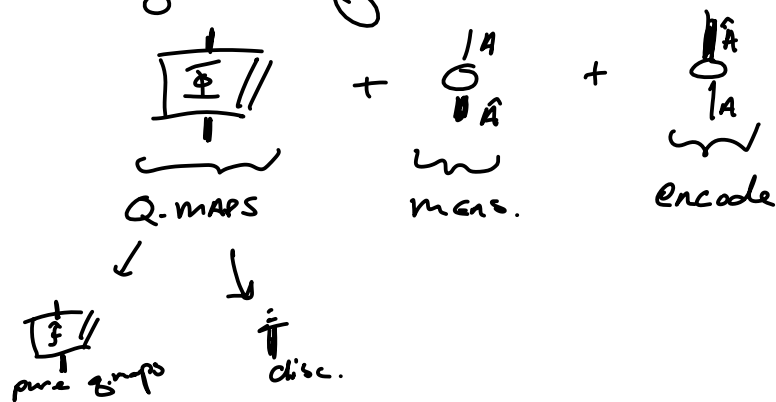 Φ + A Â + Â A
Q. MAPS meas. encode
f̂
pure q.maps disc.